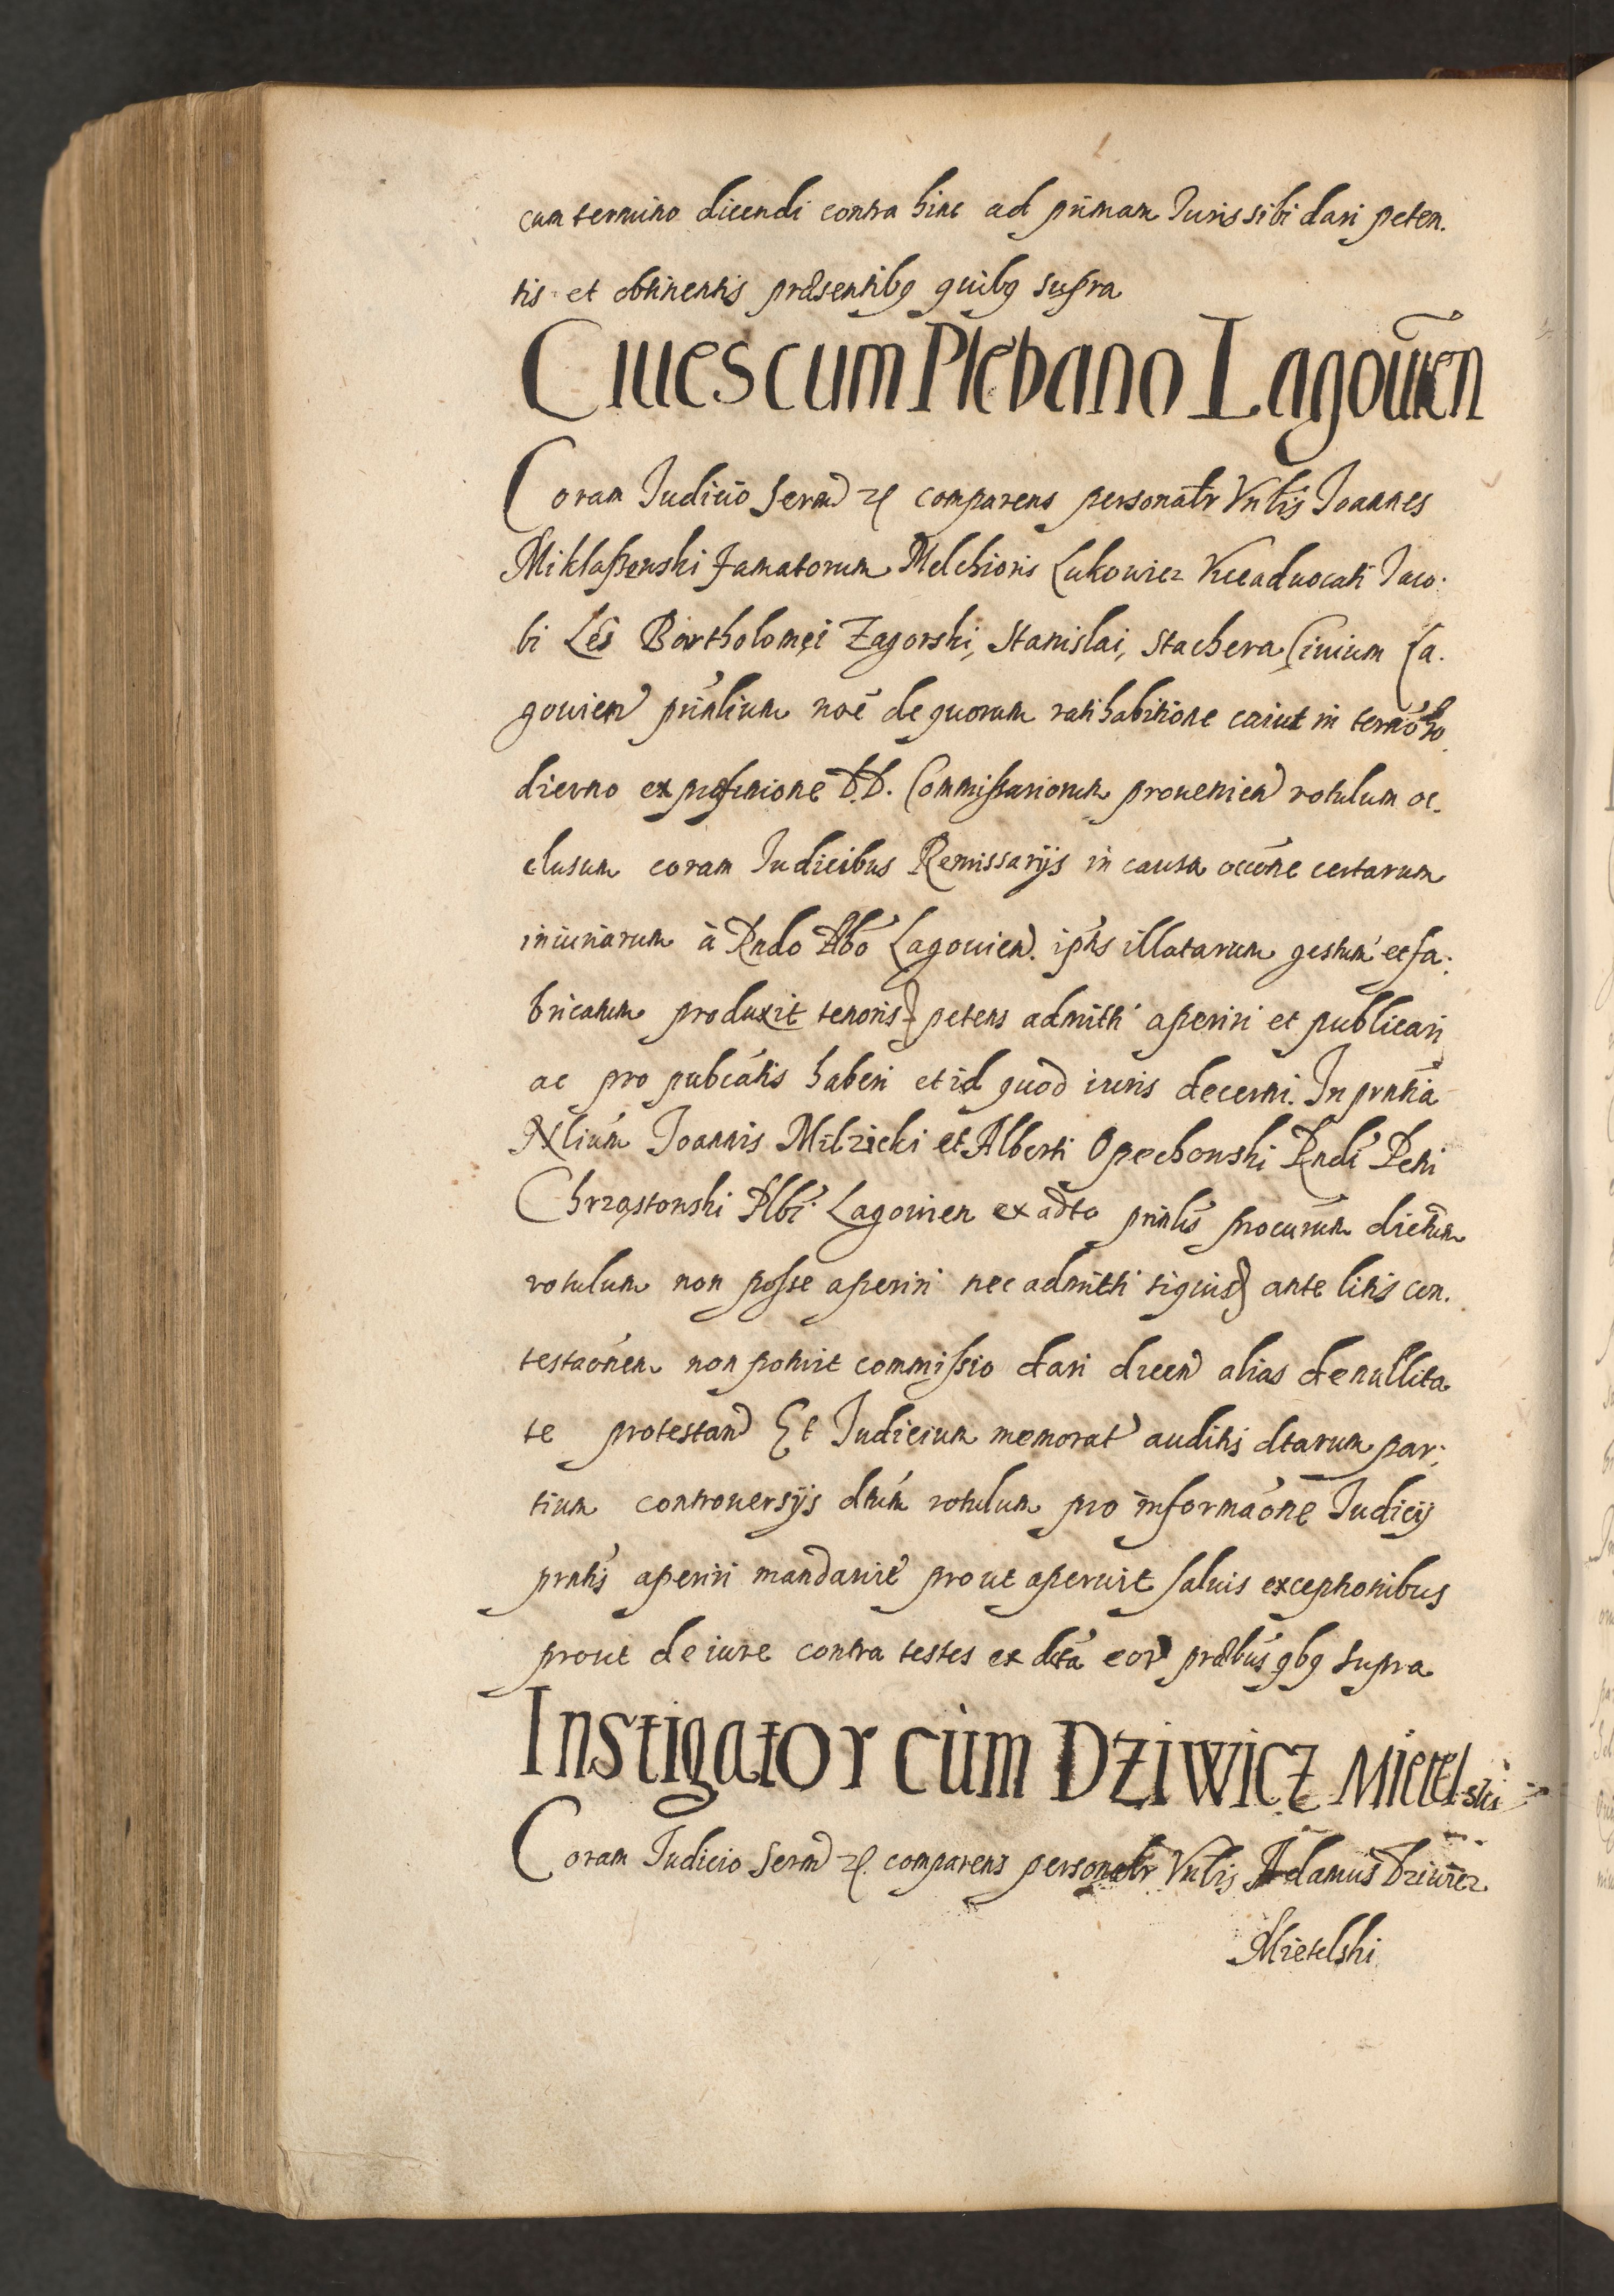 cum termino dicendi contra hinc ad primam Juris sibi dari peten.
tis et obtinentis præsentibq quibq supra
Ciues cum Plebano Lagouien
Coram Judicio Serm comparens personalr Vnlis Joannes
Miklaßewski Famatorum Melchioris Lukowicz Viceaduocati Jaco.
bi Les Bartholomęi Zagorski, Stanislai, Stachera Ciuium La.
gouien prinlium noē de quorum ratihabitione cauit in termo ho
dierno ex præfinione D.D. Commißariorum prouenien rotulum oc.
clusum coram Judicibus Remissarijs in causa occōne certarum
iniuriarum à Rndo Plbo Lagouien. ipsis illatarum gestum et fa.
bricatum produxit tenoris petens admitti aperiri et publicari
ac pro pubcatis haberi et id quod iuris decerni. In prntia
Nlium Joannis Milzicki et Alberti Opechowski Rndi Petri
Chrząstowski Plbi Lagouien ex adto prinlis procurum dictum
rotulum non posse aperiri nec admitti siquid ante litis con.
testaōnem non potuit commißio dari dicen alias de nullita
te protestand Et Judicium memorat auditis dtarum par.
tium controuersijs dtum rotulum pro informaōne Judicij
prntis aperiri mandauit prout aperuit saluis exceptionibus
prout de iure contra testes et dcta eor præbus qbq supra
Instigator cum Dziwicz Mietelski
Coram Judicio Serm comparens personalr Vnlis Adamus Dziwicz
Mietelski